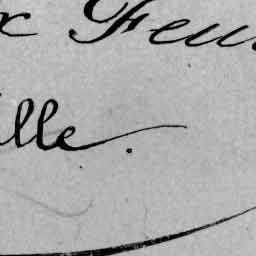 x Feu
lle.